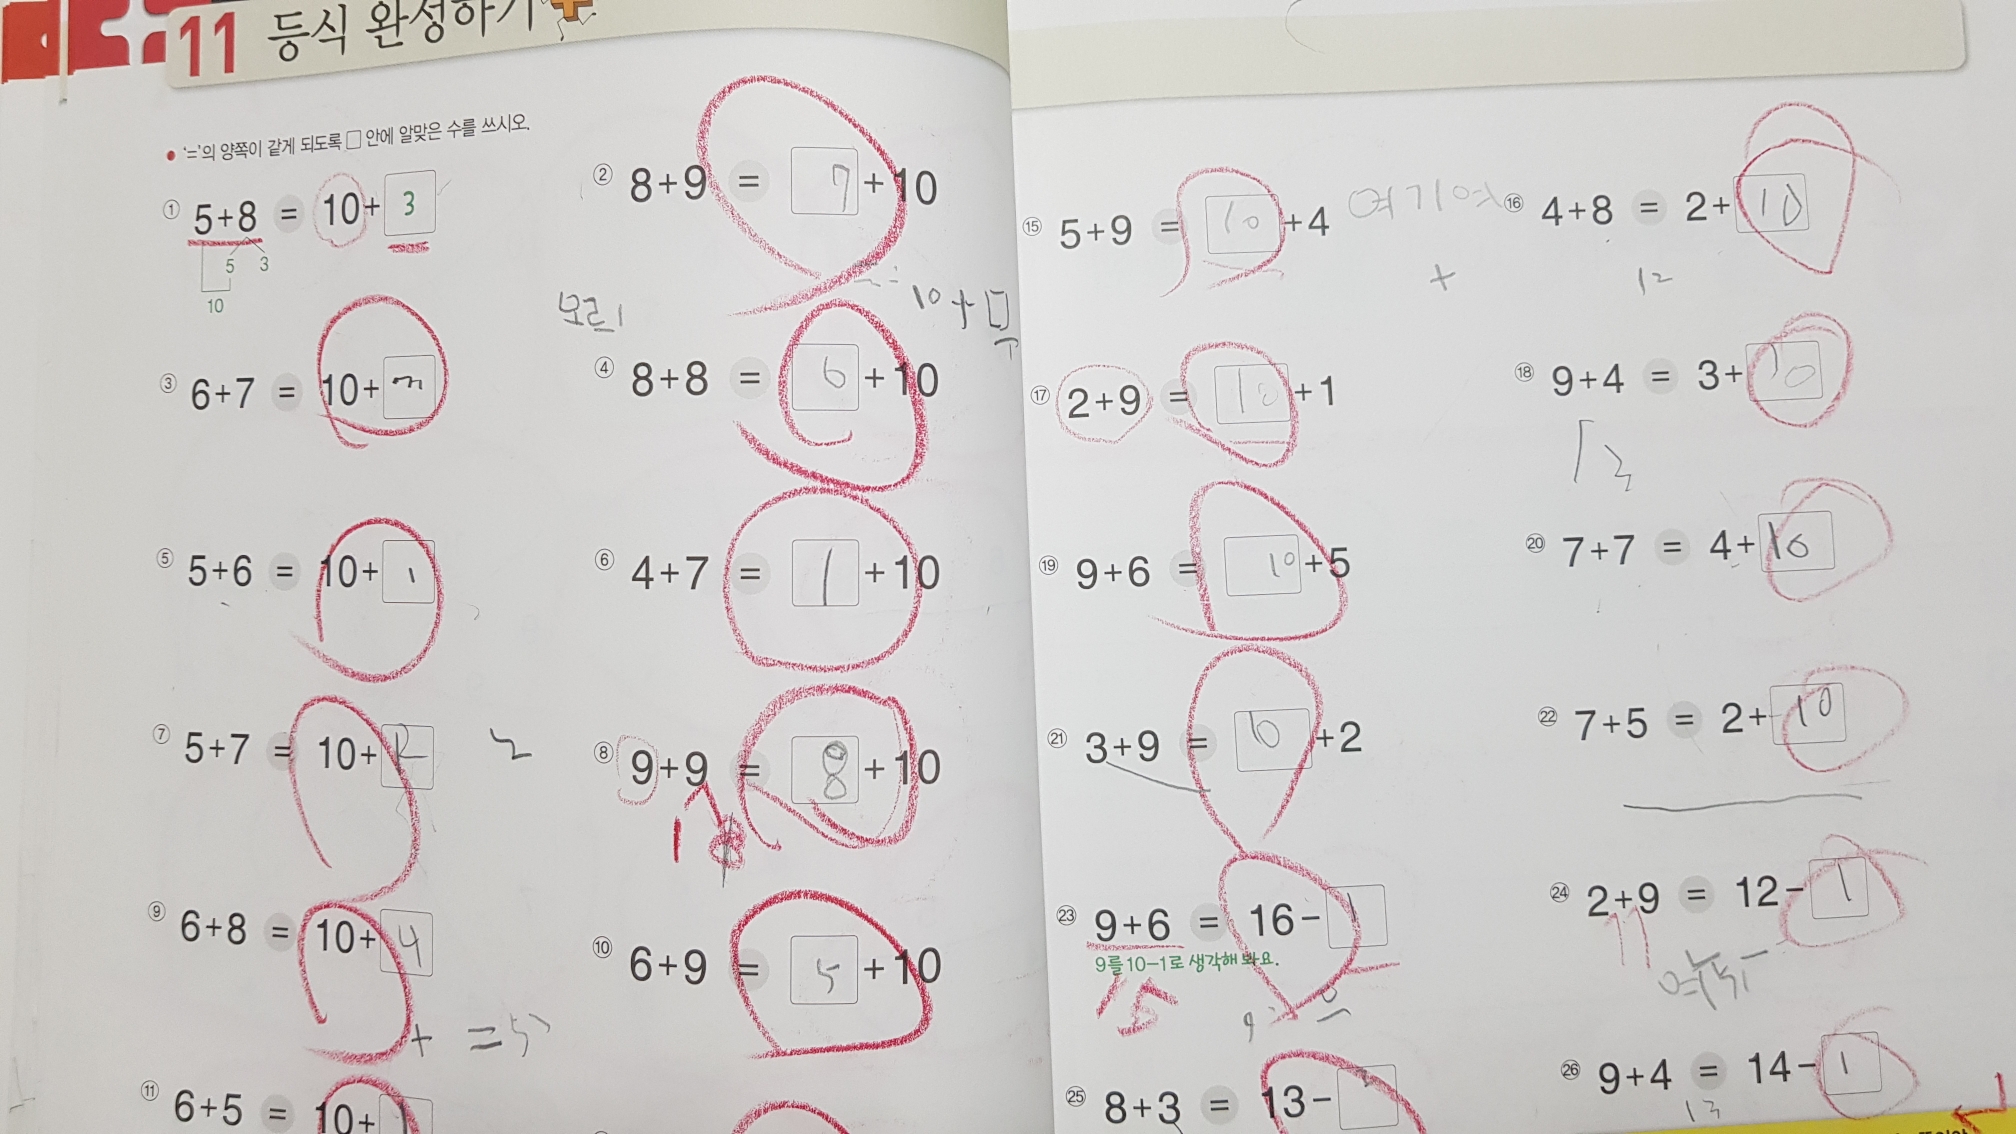 11 등식 완성하기
• '='의 양쪽이 같게 되도록 □ 안에 알맞은 수를 쓰시오.
① 5+8 = 10+3
5 3
10
② 8+9 = 7+10
모르
10+□
③ 6+7 = 10+3
④ 8+8 = 6+10
⑤ 5+6 = 10+1
⑥ 4+7 = 1+10
⑦ 5+7 = 10+2
2
⑧ 9+9 = 8+10
1 8
⑨ 6+8 = 10+4
+ =5
⑩ 6+9 = 5+10
⑪ 6+5 = 10+1
⑮ 5+9 = 10+4
여기여
+
⑯ 4+8 = 2+10
12
⑰ 2+9 = 10+1
⑱ 9+4 = 3+10
13
⑲ 9+6 = 10+5
⑳ 7+7 = 4+10
㉑ 3+9 = 10+2
㉒ 7+5 = 2+10
㉓ 9+6 = 16-1
9를 10-1로 생각해 봐요.
15
㉔ 2+9 = 12-1
11
㉕ 8+3 = 13-2
㉖ 9+4 = 14-1
13